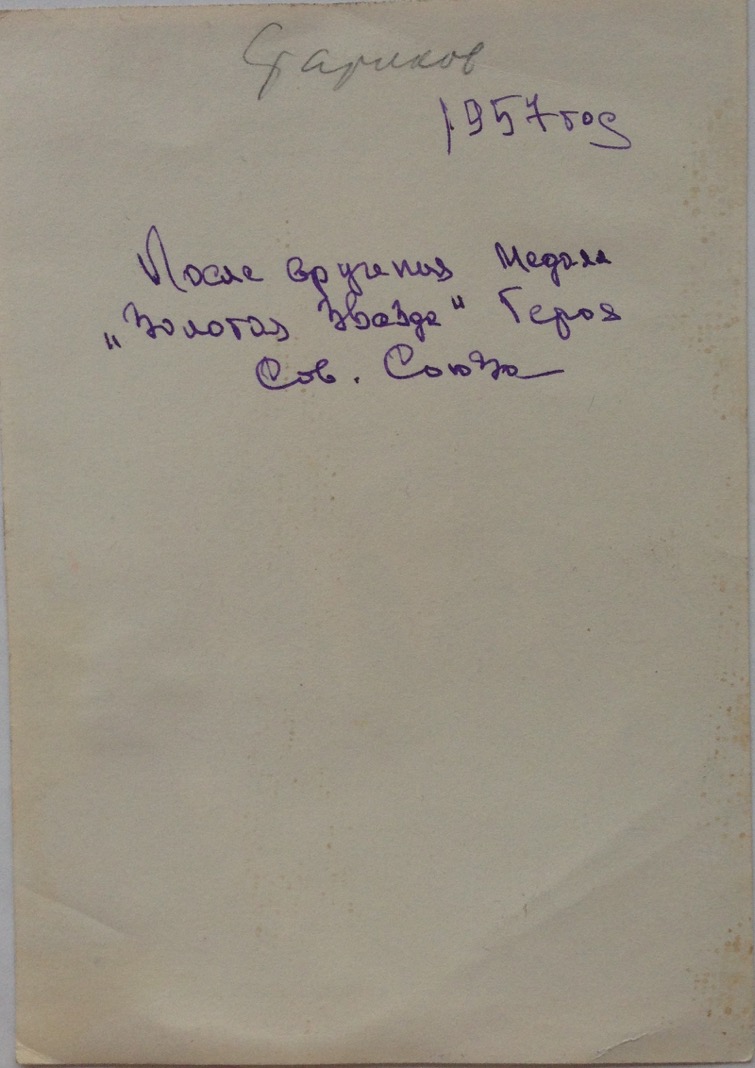 Стариков
1957 год
После вручения медали
„Золотая Звезда" Героя
Сов. Союза